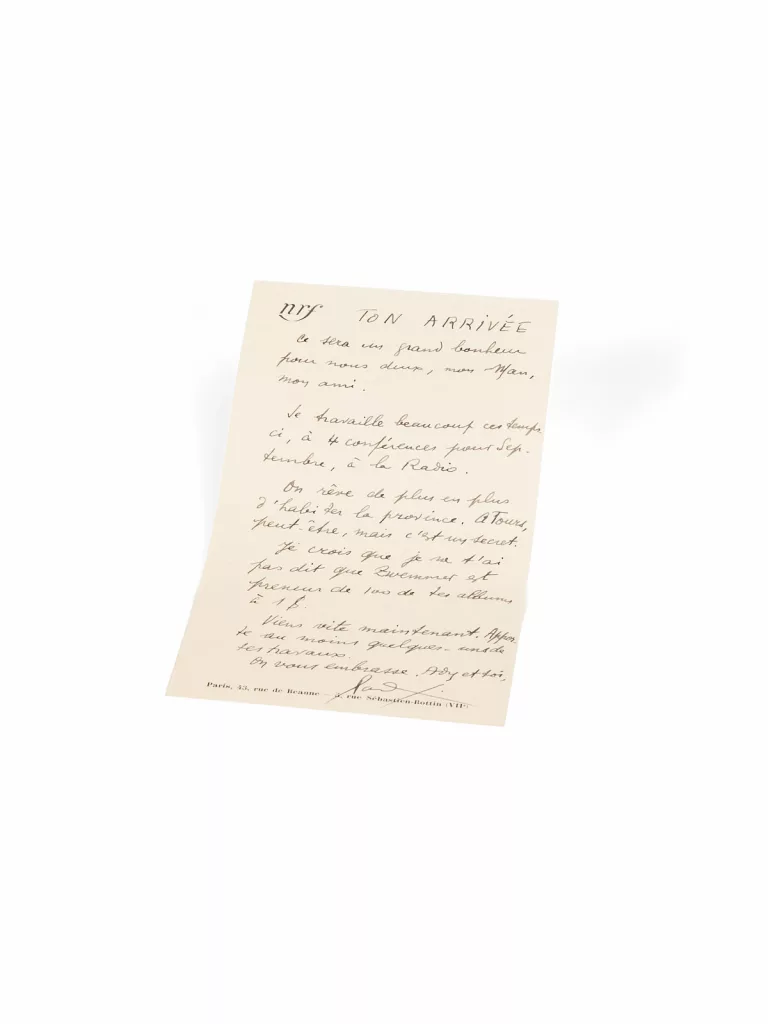 nrf TON ARRIVÉE
ce sera un grand bonheur
pour nous deux, mon Man,
mon ami.
Je travaille beaucoup ces temps
ci, à 4 conférences pour Sep-
tembre, à la Radio.
On rêve de plus en plus
d'habiter la province. A Tours,
peut-être, mais c'est un secret.
Je crois que je ne t'ai
pas dit que Zwemmer est
preneur de 100 de tes albums
à 1 £.
Viens vite maintenant. Appor
te au moins quelques-uns de
tes travaux.
On vous embrasse. Ady et toi,
Paris, 43, rue de Beaune — 5, rue Sébastien-Bottin (VIIe)